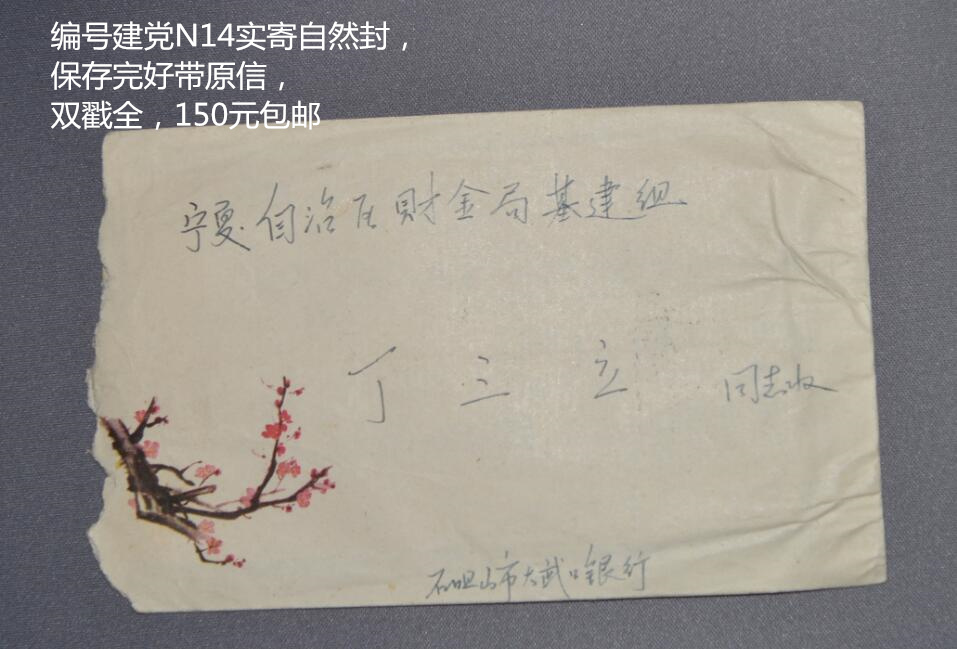 编号建党N14实寄自然封，
保存完好带原信，
双戳全，150元包邮
宁夏自治区财金局基建组
丁三立 同志收
石咀山市大武口银行